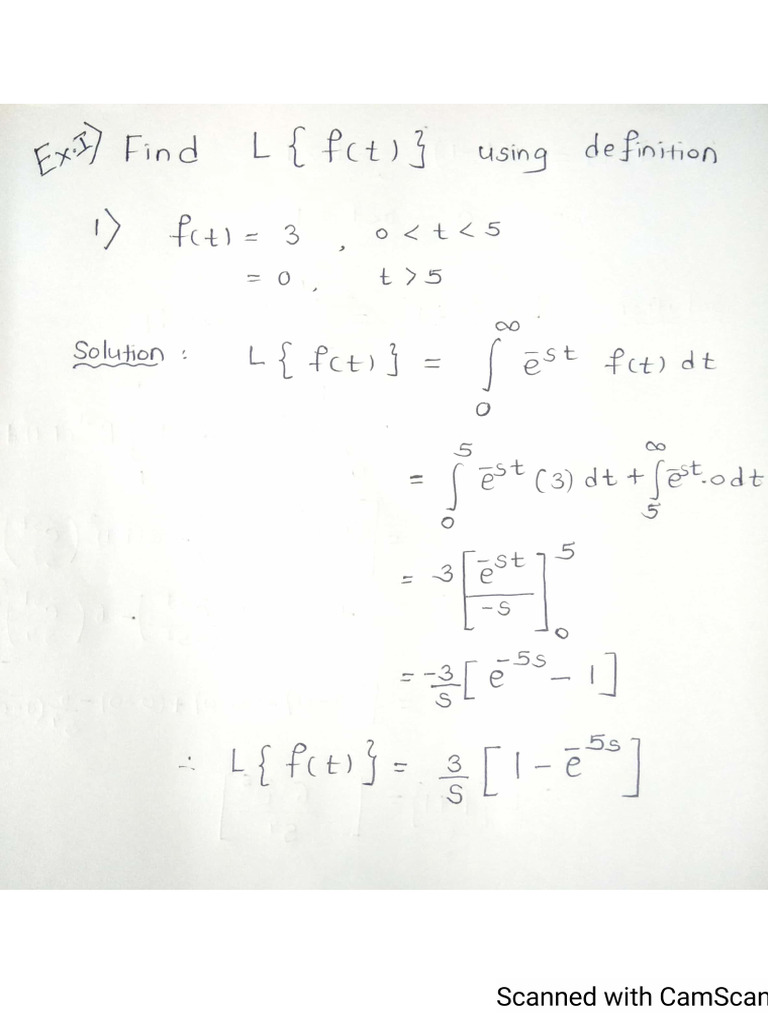 Ex.I) Find L{ f(t) } using definition
1) f(t) = 3 , 0 < t < 5
= 0 , t > 5
Solution : L{ f(t) } = ∫₀^∞ e^{-st} f(t) dt
= ∫₀^5 e^{-st} (3) dt + ∫₅^∞ e^{-st} . 0 dt
= 3 [ e^{-st} / -s ]₀^5
= -3/s [ e^{-5s} - 1 ]
∴ L{ f(t) } = 3/s [ 1 - e^{-5s} ]
Scanned with CamScan